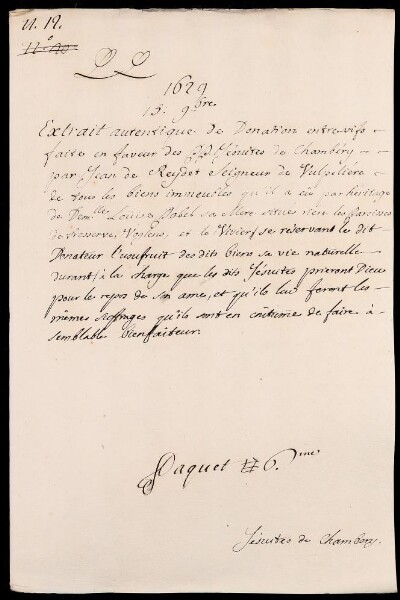 n. 12.
n.° 20
1629
15. 9bre.
Extrait autentique de Donation entre vifs
faite en faveur des PP. Jésuites de Chambéry
par Jean de Reydet Seigneur de Vulpillière
de tous les biens immeubles qu'il a eu par héritage
de Demlle Louise Bobel sa Mere situés rière les Paroisses
de Tresserve, Voglens, et le Vivier, se reservant le dit
Donateur l'usufruit des dits biens sa vie naturelle
durant, à la charge que les dits Jésuites prieront Dieu
pour le repos de son ame, et qu'ils lui feront les
mêmes Suffrages qu'ils sont en coûtume de faire à
semblable bienfaiteur.
Paquet # 6.me
Jésuites de Chambery.